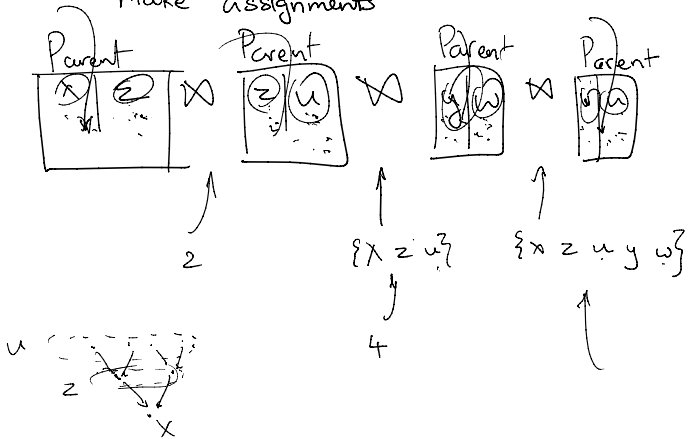 Make assignments
Parent Parent Parent Parent
x z ⋈ z u ⋈ y w ⋈ w u
2 {x z u} {x z u y w}
4
u
z
x